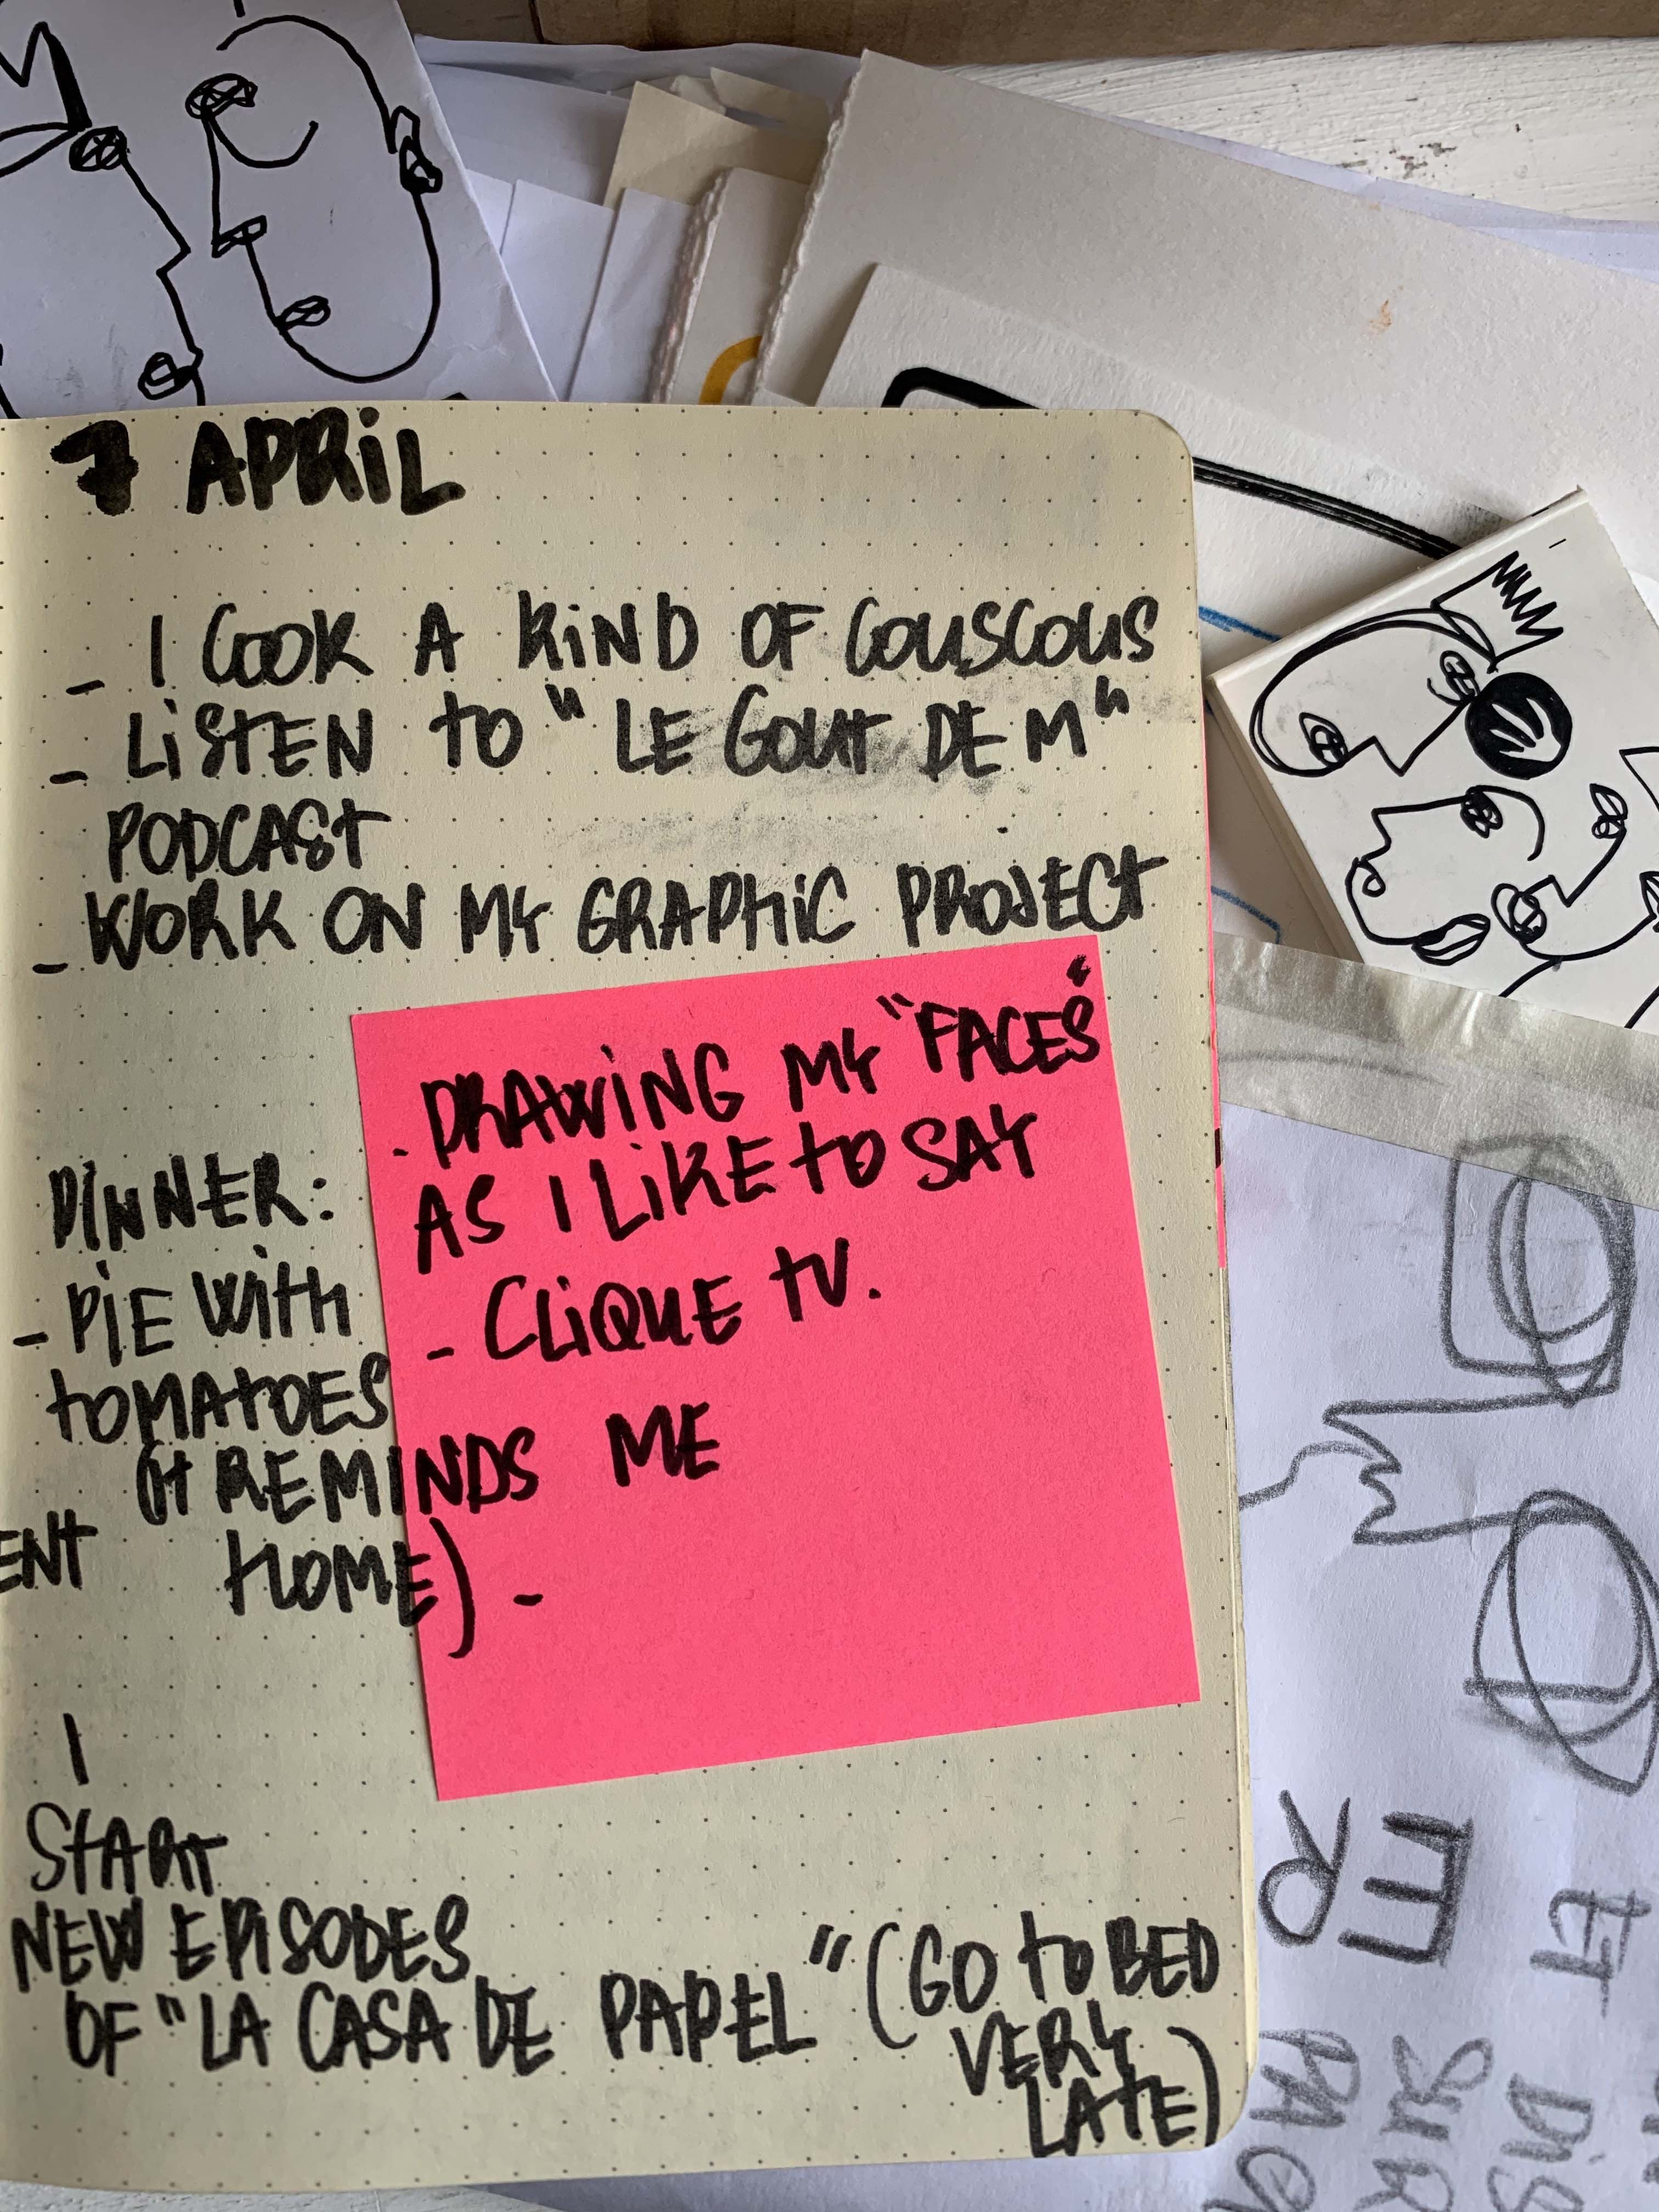 7 APRIL
- I COOK A KIND OF COUSCOUS
- LISTEN TO "LE GOUT DE M"
PODCAST
- WORK ON MY GRAPHIC PROJECT
. DRAWING MY "FACES"
AS I LIKE TO SAY
- CLIQUE TV.
DINNER:
- PIE WITH
TOMATOES
(IT REMINDS ME
HOME) -
ENT
I
START
NEW EPISODES
OF "LA CASA DE PAPEL" (GO TO BED
VERY
LATE)
ER
ET